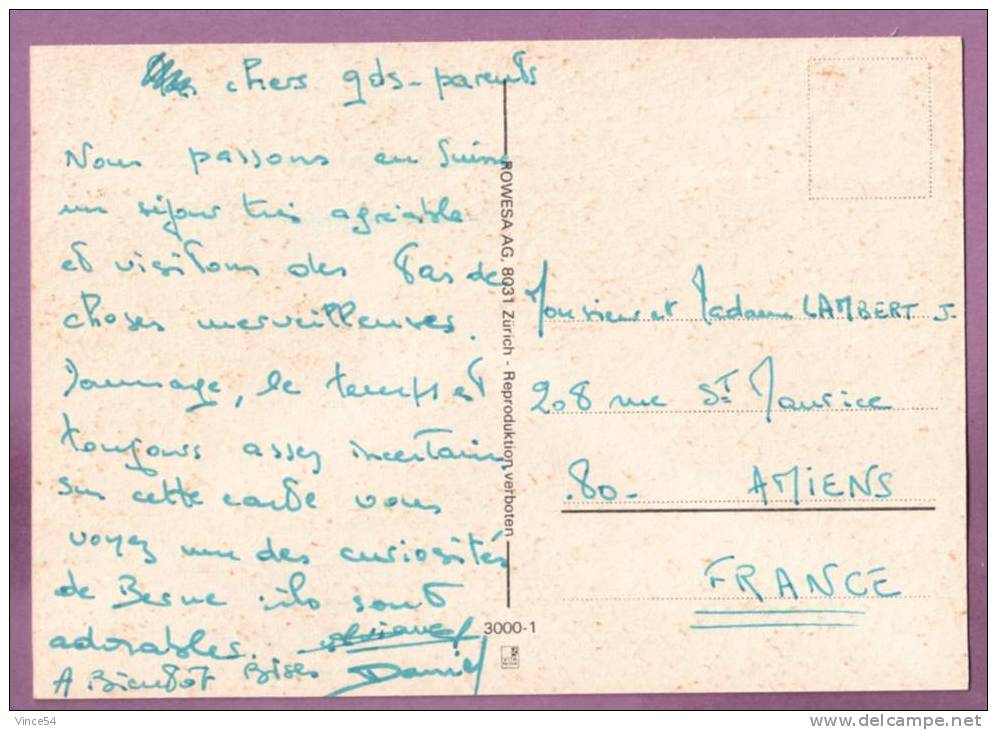 chers gds-parents
Nous passons en Suisse
un séjour très agréable
et visitons des tas de
choses merveilleuses.
Dommage, le temps est
toujours assez incertain.
Sur cette carte vous
voyez une des curiosités
de Berne : ils sont
adorables.
A Bientôt Bises Daniel
ROWESA AG, 8031 Zürich - Reproduktion verboten
3000-1
Monsieur et Madame LAMBERT J.
208 rue St Maurice
.80- AMIENS
FRANCE
Vince54
www.delcampe.net